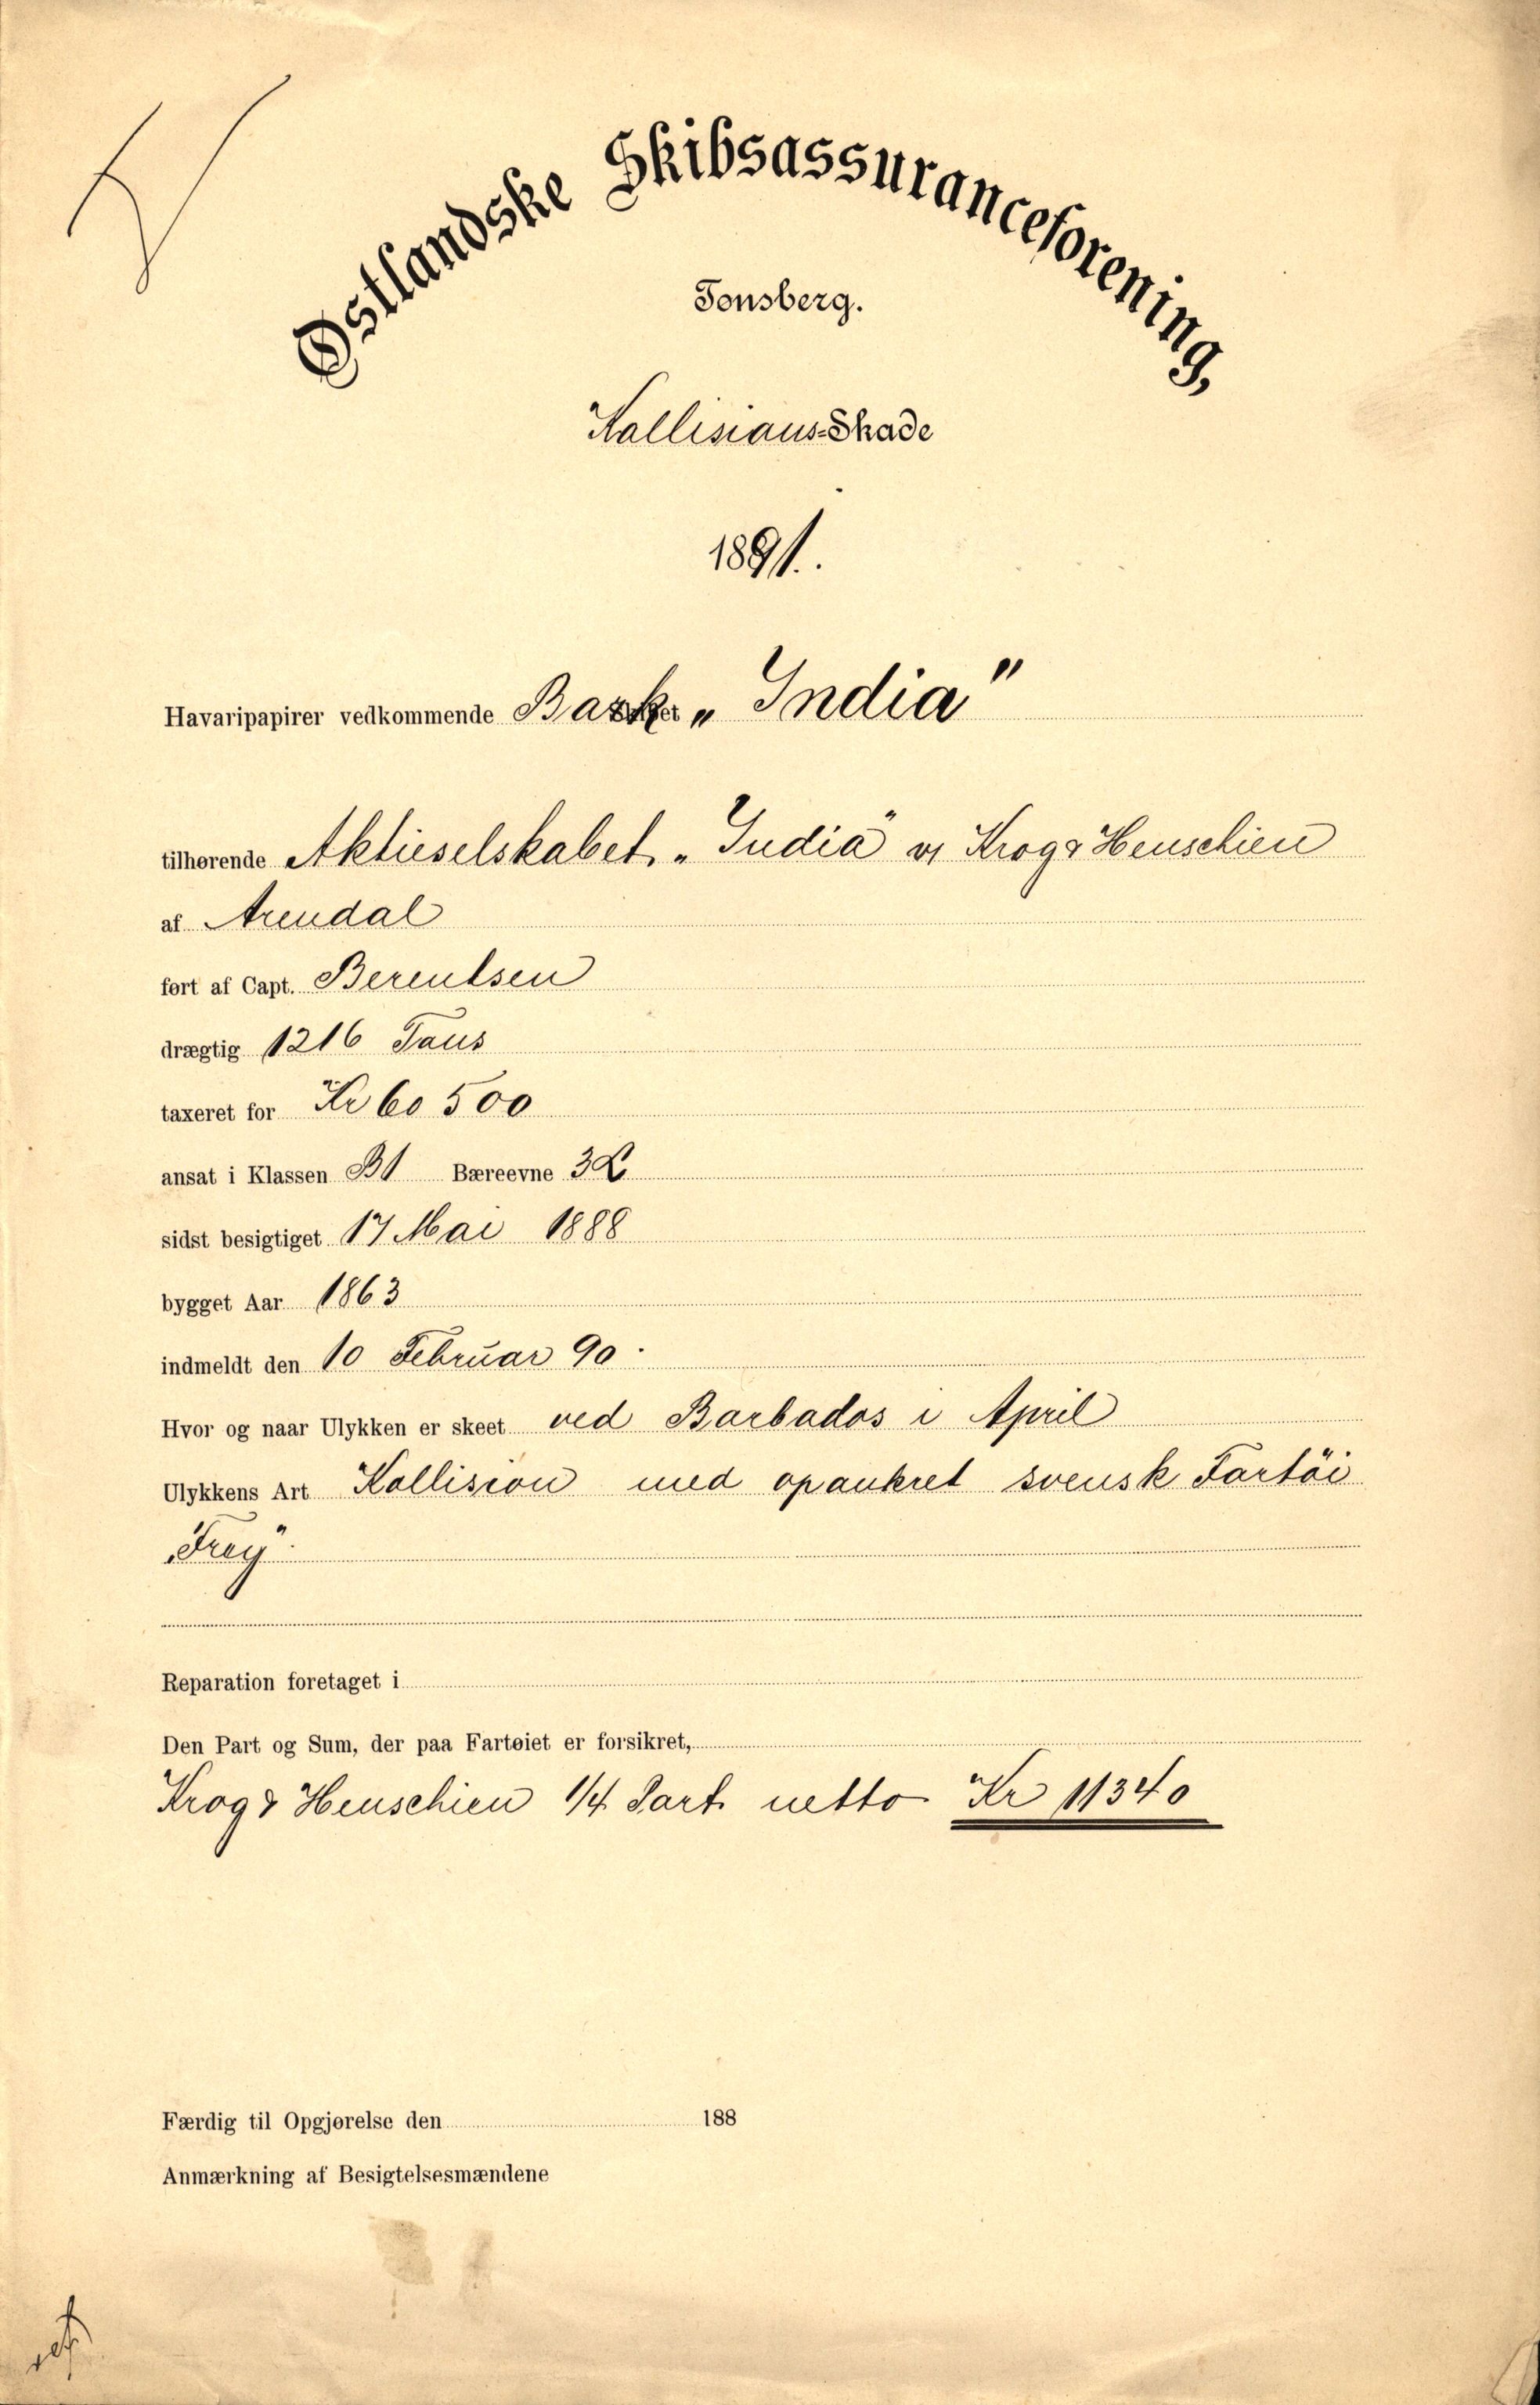 Østlandske Skibsassuranceforening,
Tønsberg.
Kollisions-Skade
1891.
Havaripapirer vedkommende Bark „India"
tilhørende Aktieselskabet „India" v/ Krog & Henschien
af Arendal
ført af Capt. Berentsen
drægtig 1216 Tons
taxeret for Kr 60 500
ansat i Klassen B1 Bæreevne
sidst besigtiget 17 Mai 1888
bygget Aar 1863
indmeldt den 10 Februar 90.
Hvor og naar Ulykken er skeet ved Barbados i April
Ulykkens Art Kollision med opankret svensk Fartöi
„Frey".
Reparation foretaget i
Den Part og Sum, der paa Fartøiet er forsikret,
Krog & Henschien 1/4 Part netto Kr 11340
Færdig til Opgjørelse den 188
Anmærkning af Besigtelsesmændene